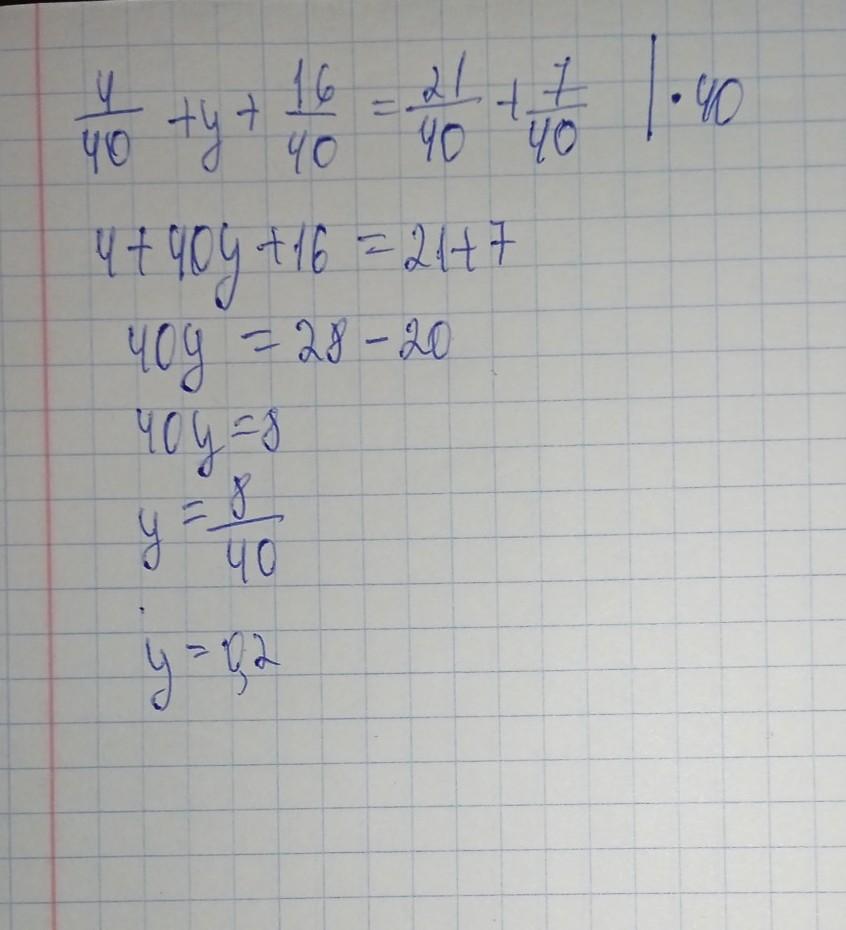 4/40 + y + 16/40 = 21/40 + 7/40 | · 40
4 + 40y + 16 = 21 + 7
40y = 28 - 20
40y = 8
y = 8/40
y = 0,2